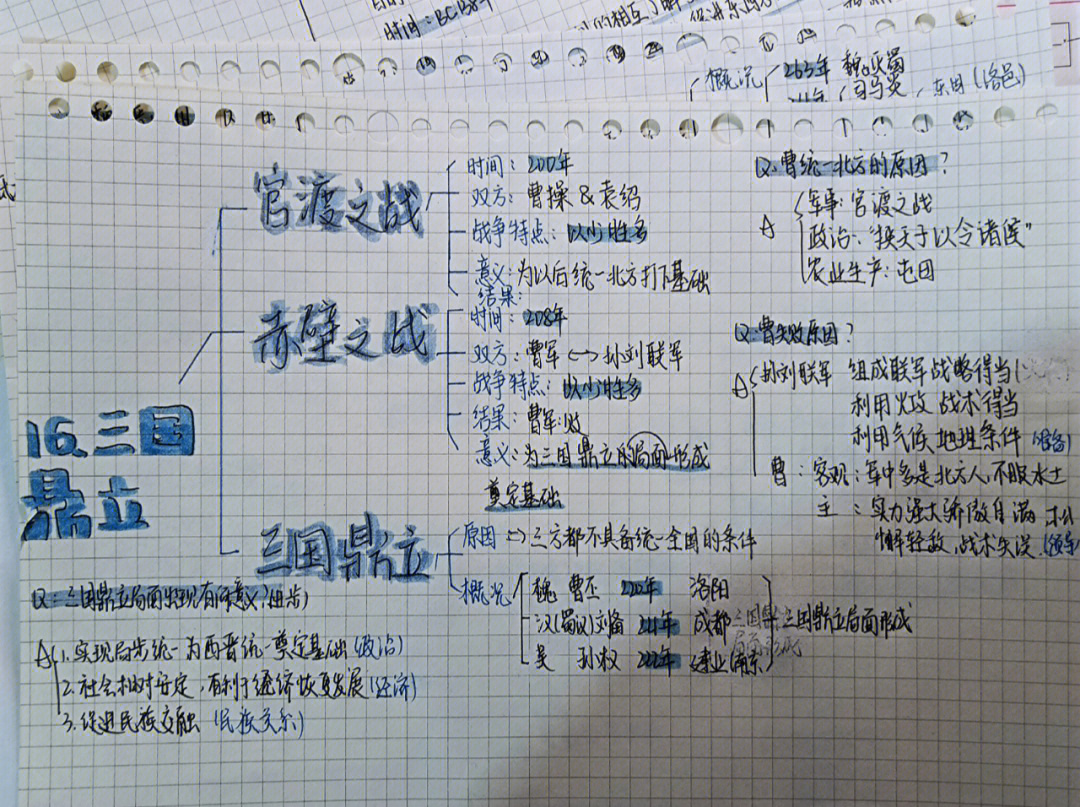 时间：BC138年
概况
263年 魏灭蜀
司马炎
东周（洛邑）
16.三国
鼎立
官渡之战
时间：200年
双方：曹操 & 袁绍
战争特点：以少胜多
意义：为以后统一北方打下基础
结果：
赤壁之战
时间：208年
双方：曹军 <-> 孙刘联军
战争特点：以少胜多
结果：曹军败
意义：为三国鼎立的局面形成
奠定基础
三国鼎立
原因 => 三方都不具备统一全国的条件
概况
魏 曹丕 220年 洛阳
汉(蜀汉)刘备 221年 成都
吴 孙权 222年 建业(南京)
三国鼎立局面形成
Q.曹统一北方的原因？
A
军事：官渡之战
政治："挟天子以令诸侯"
农业生产：屯田
Q.曹失败原因？
A
孙刘联军 组成联军 战略得当
利用火攻 战术得当
利用气候 地理条件
曹：客观：军中多是北方人，不服水土
主：实力强大骄傲自满
轻敌，战术失误
Q：三国鼎立局面出现有何意义？(进步)
A
1.实现局部统一为西晋统一奠定基础(政治)
2.社会相对安定，有利于经济恢复发展(经济)
3.促进民族交融 (民族关系)